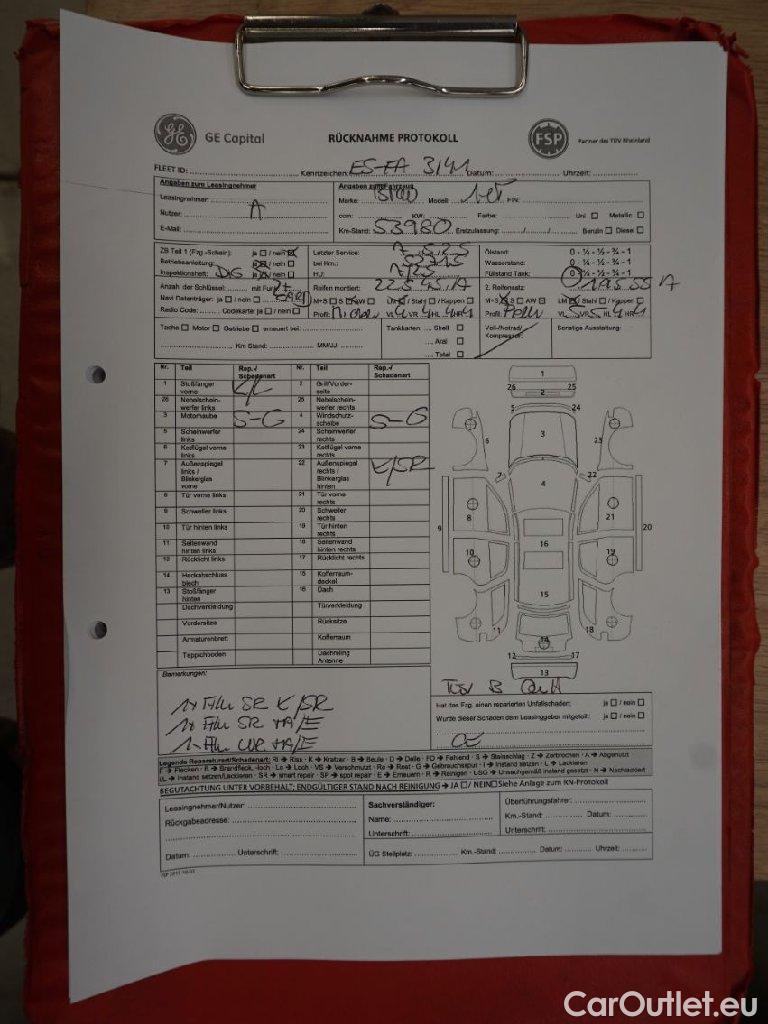 GE Capital
RÜCKNAHME PROTOKOLL
FSP
Partner des TÜV Rheinland
FLEET ID: Kennzeichen: ES-FA 314M Datum: Uhrzeit:
Angaben zum Leasingnehmer
Leasingnehmer:
Nutzer: A
E-Mail:
Angaben zum Fahrzeug
Marke: Modell: FIN:
ccm: KW: Farbe: Uni ☐ Metallic ☐
Km-Stand: 53980 Erstzulassung: Benzin ☐ Diesel ☐
ZB Teil 1 (Fzg.-Schein): ja ☐ / nein ☒
Betriebsanleitung: ja ☒ / nein ☐
Inspektionsheft: DiG ja ☒ / nein ☐
Letzter Service:
bei Km.:
HU:
Ölstand: 0 - ¼ - ½ - ¾ - 1
Wasserstand: 0 - ¼ - ½ - ¾ - 1
Füllstand Tank: 0 - ¼ - ½ - ¾ - 1
Anzahl der Schlüssel: mit Funk
Navi Datenträger: ja ☐ / nein ☐
Radio Code: Codekarte ja ☐ / nein ☐
Reifen montiert:
M+S ☐ S ☒ AW ☐ LM ☒ / Stahl ☐ / Kappen ☐
Profil: VL 4 VR 4 HL 4 HR 4
2. Reifensatz: 195 55 1A
M+S ☒ S ☐ AW ☐ LM ☒ Stahl ☐ / Kappen ☐
Profil: VL 5 VR 5 HL 4 HR 4
Tacho ☐ Motor ☐ Getriebe ☐ erneuert bei:
Km Stand: MM/JJ
Tankkarten ... Shell ☐
... Aral ☐
... Total ☐
Voll-/Notrad/
Kompressor:
Sonstige Ausstattung:
Nr. Teil Rep./ Schadenart Nr. Teil Rep./ Schadenart
1 Stoßfänger vorne K/L 2 Grill/Vorderseite
26 Nebelscheinwerfer links 25 Nebelscheinwerfer rechts
3 Motorhaube S-G 4 Windschutzscheibe S-G
5 Scheinwerfer links 24 Scheinwerfer rechts
6 Kotflügel vorne links 23 Kotflügel vorne rechts
7 Außenspiegel links / Blinkerglas vorne 22 Außenspiegel rechts / Blinkerglas hinten K/SR
8 Tür vorne links 21 Tür vorne rechts
9 Schweller links 20 Schweller rechts
10 Tür hinten links 19 Tür hinten rechts
11 Seitenwand hinten links 18 Seitenwand hinten rechts
12 Rücklicht links 17 Rücklicht rechts
14 Heckabschlussblech 15 Kofferraumdeckel
13 Stoßfänger hinten 16 Dach
Dachverkleidung Türverkleidung
Vordersitze Rücksitze
Armaturenbrett Kofferraum
Teppichboden Dachreling Antenne
1
26 25
2
5 24
3
6 23
7 22
4
8 21
9 20
16
10 19
15
11 18
14
12 17
13
Bemerkungen:
1x Felu SR K/SR
1x Felu SR HA/E
1x Felu WR HA/E
Hat das Frg. einen reparierten Unfallschaden: ja ☐ / nein ☐
Wurde dieser Schaden dem Leasinggeber mitgeteilt: ja ☐ / nein ☐
Legende Reparaturart/Schadenart: RI → Riss - K → Kratzer - B → Beule - D → Delle - FD → Fehlend - S → Steinschlag - Z → Zerbrochen - A → Abgenutzt
F → Flecken - R → Brandfleck, -loch - Lo → Loch - VS → Verschmutzt - Re → Rest - G → Gebrauchsspur - I → Instand setzen - L → Lackieren
I/L → Instand setzen/Lackieren - SR → smart repair - SP → spot repair - E → Erneuern - R → Reinigen - USG → Unsachgemäß instand gesetzt - N → Nacharbeit
BEGUTACHTUNG UNTER VORBEHALT; ENDGÜLTIGER STAND NACH REINIGUNG → JA ☐ / NEIN ☐ Siehe Anlage zum KN-Protokoll
Leasingnehmer/Nutzer:
Rückgabeadresse:
Datum: Unterschrift:
Sachverständiger:
Name:
Unterschrift:
Überführungsfahrer:
Km.-Stand: Datum:
Unterschrift:
ÜG Stellplatz: Km.-Stand: Datum: Uhrzeit:
CarOutlet.eu